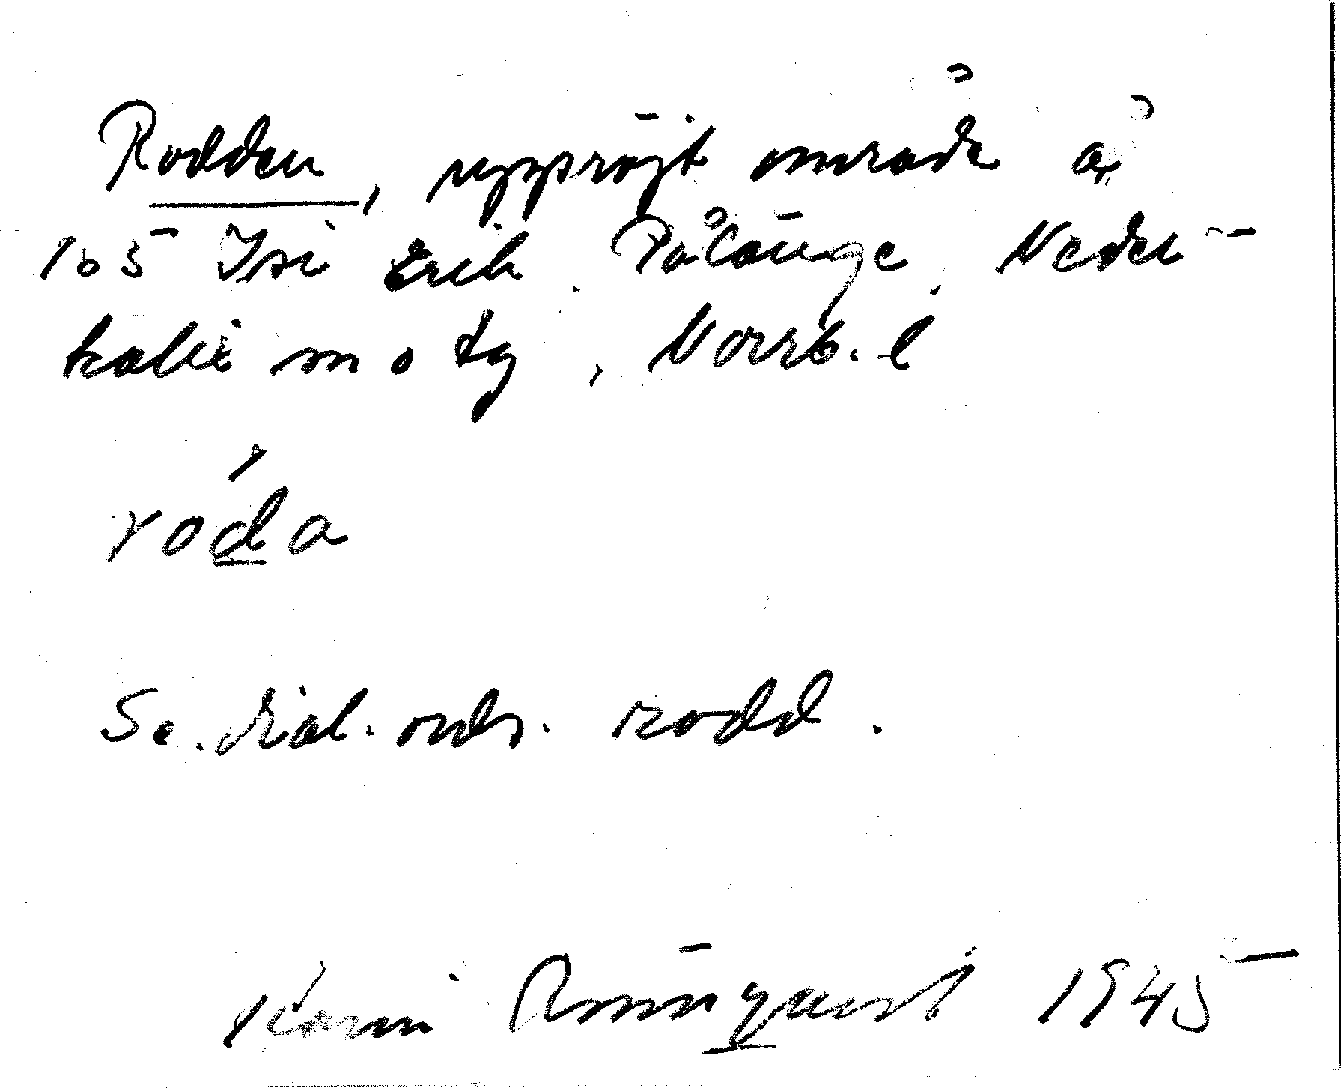 Rodden, uppröjt område å
105 Isi Erik. Pålänge, Neder-
kalix m o tg, Norrb. l
róda
Se. dial. ordr. rodd.
Karin Rönnquist 1945